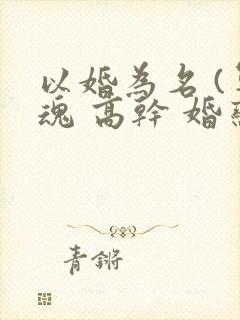 以婚為名(
魂 高幹 婚
青鏘